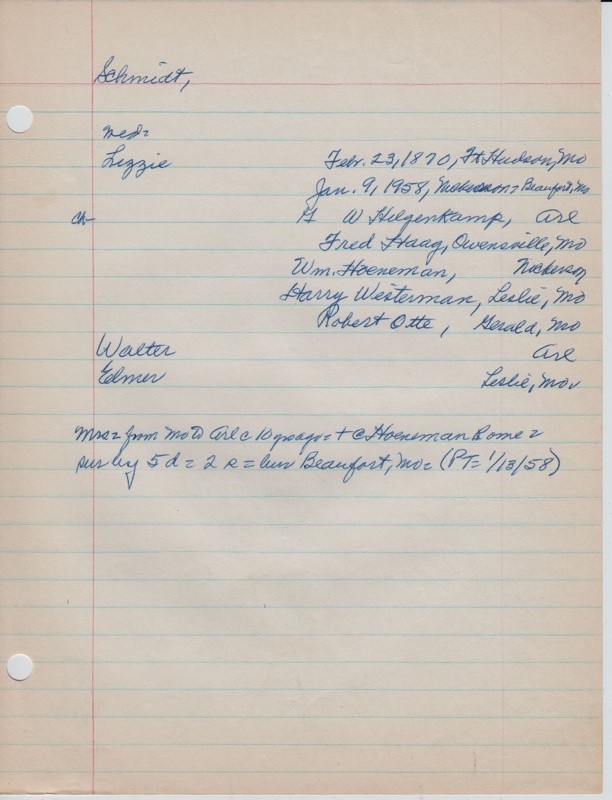 Schmidt,
med=
Lizzie Feb. 23, 1870, Ft Hudson, Mo
Jan. 9, 1958, Nickerson = Beaufort, Mo
ch- W Hilgenkamp, Arl
Fred Haag, Owensville, Mo
Wm. Hoeneman, Nickerson
Harry Westerman, Leslie, Mo
Robert Otte, Gerald, Mo
Walter Arl
Elmer Leslie, Mo
Mrs = from Mo to Arl c 10 yrs ago = + C Hoeneman home =
sur by 5 d = 2 s = bur Beaufort, Mo = (PT= 1/13/58)